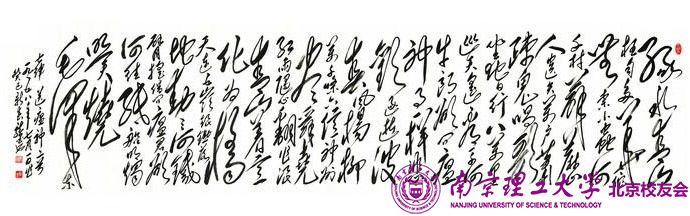 绿水青山
枉自多華佗
無奈小虫何
千村薜荔
人遗矢万户萧
疏鬼唱歌
坐地日行八万里
巡天遥看一千河
牛郎欲问瘟
神事一样悲
歡逐逝波
春風楊柳
万千条六亿神州
尽舜尧
红雨随心翻作浪
青山着意
化为橋
天连五岭银锄落
地動三河鐵
臂摇借问瘟君欲
何往纸船明烛
天燒
毛澤東
南京理工大学 北京校友会
NANJING UNIVERSITY OF SCIENCE & TECHNOLOGY